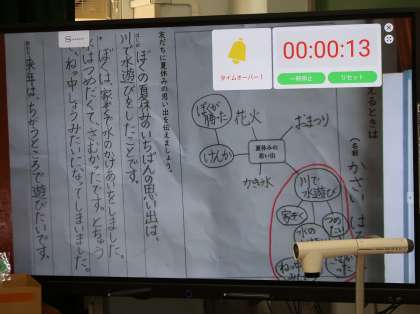 タイムオーバー！
00:00:13
一時停止
リセット
えるときは
(名前 かさい は
夏休みの
思い出
花火
おまつり
ぼくが
勝った
けんか
かき氷
川で
水遊び
家ぞく
水の
つめた
ねっ中
友だちに夏休みの思い出を伝えましょう。
ぼくの夏休みのいちばんの思い出は、
川で水遊びをしたことです。
ぼくは、家ぞくで水のかけあいをしました。
はつめたくて、さむかったです。とちゅう
、ねっ中しょうみたいになってしまいました。
来年は、ちがうところで遊びたいです。